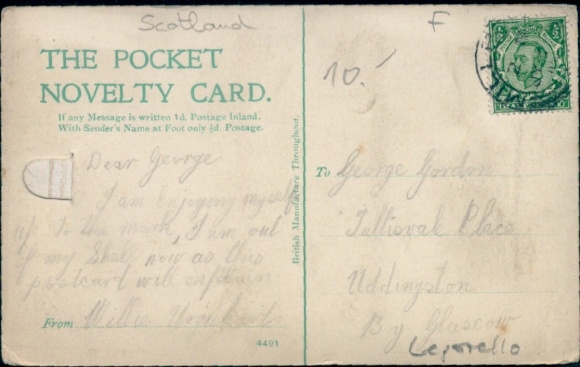 Scotland
F
10.-
THE POCKET
NOVELTY CARD.
If any Message is written 1d. Postage Inland.
With Sender's Name at Foot only ½d. Postage.
Dear George
I am Enjoying myself
up to the mark, I am out
of my Shell now as this
postcard will explain
From Willie
4491
British Manufacture Throughout.
To George Gordon
Place
Uddingston
By Glascow
Leporello